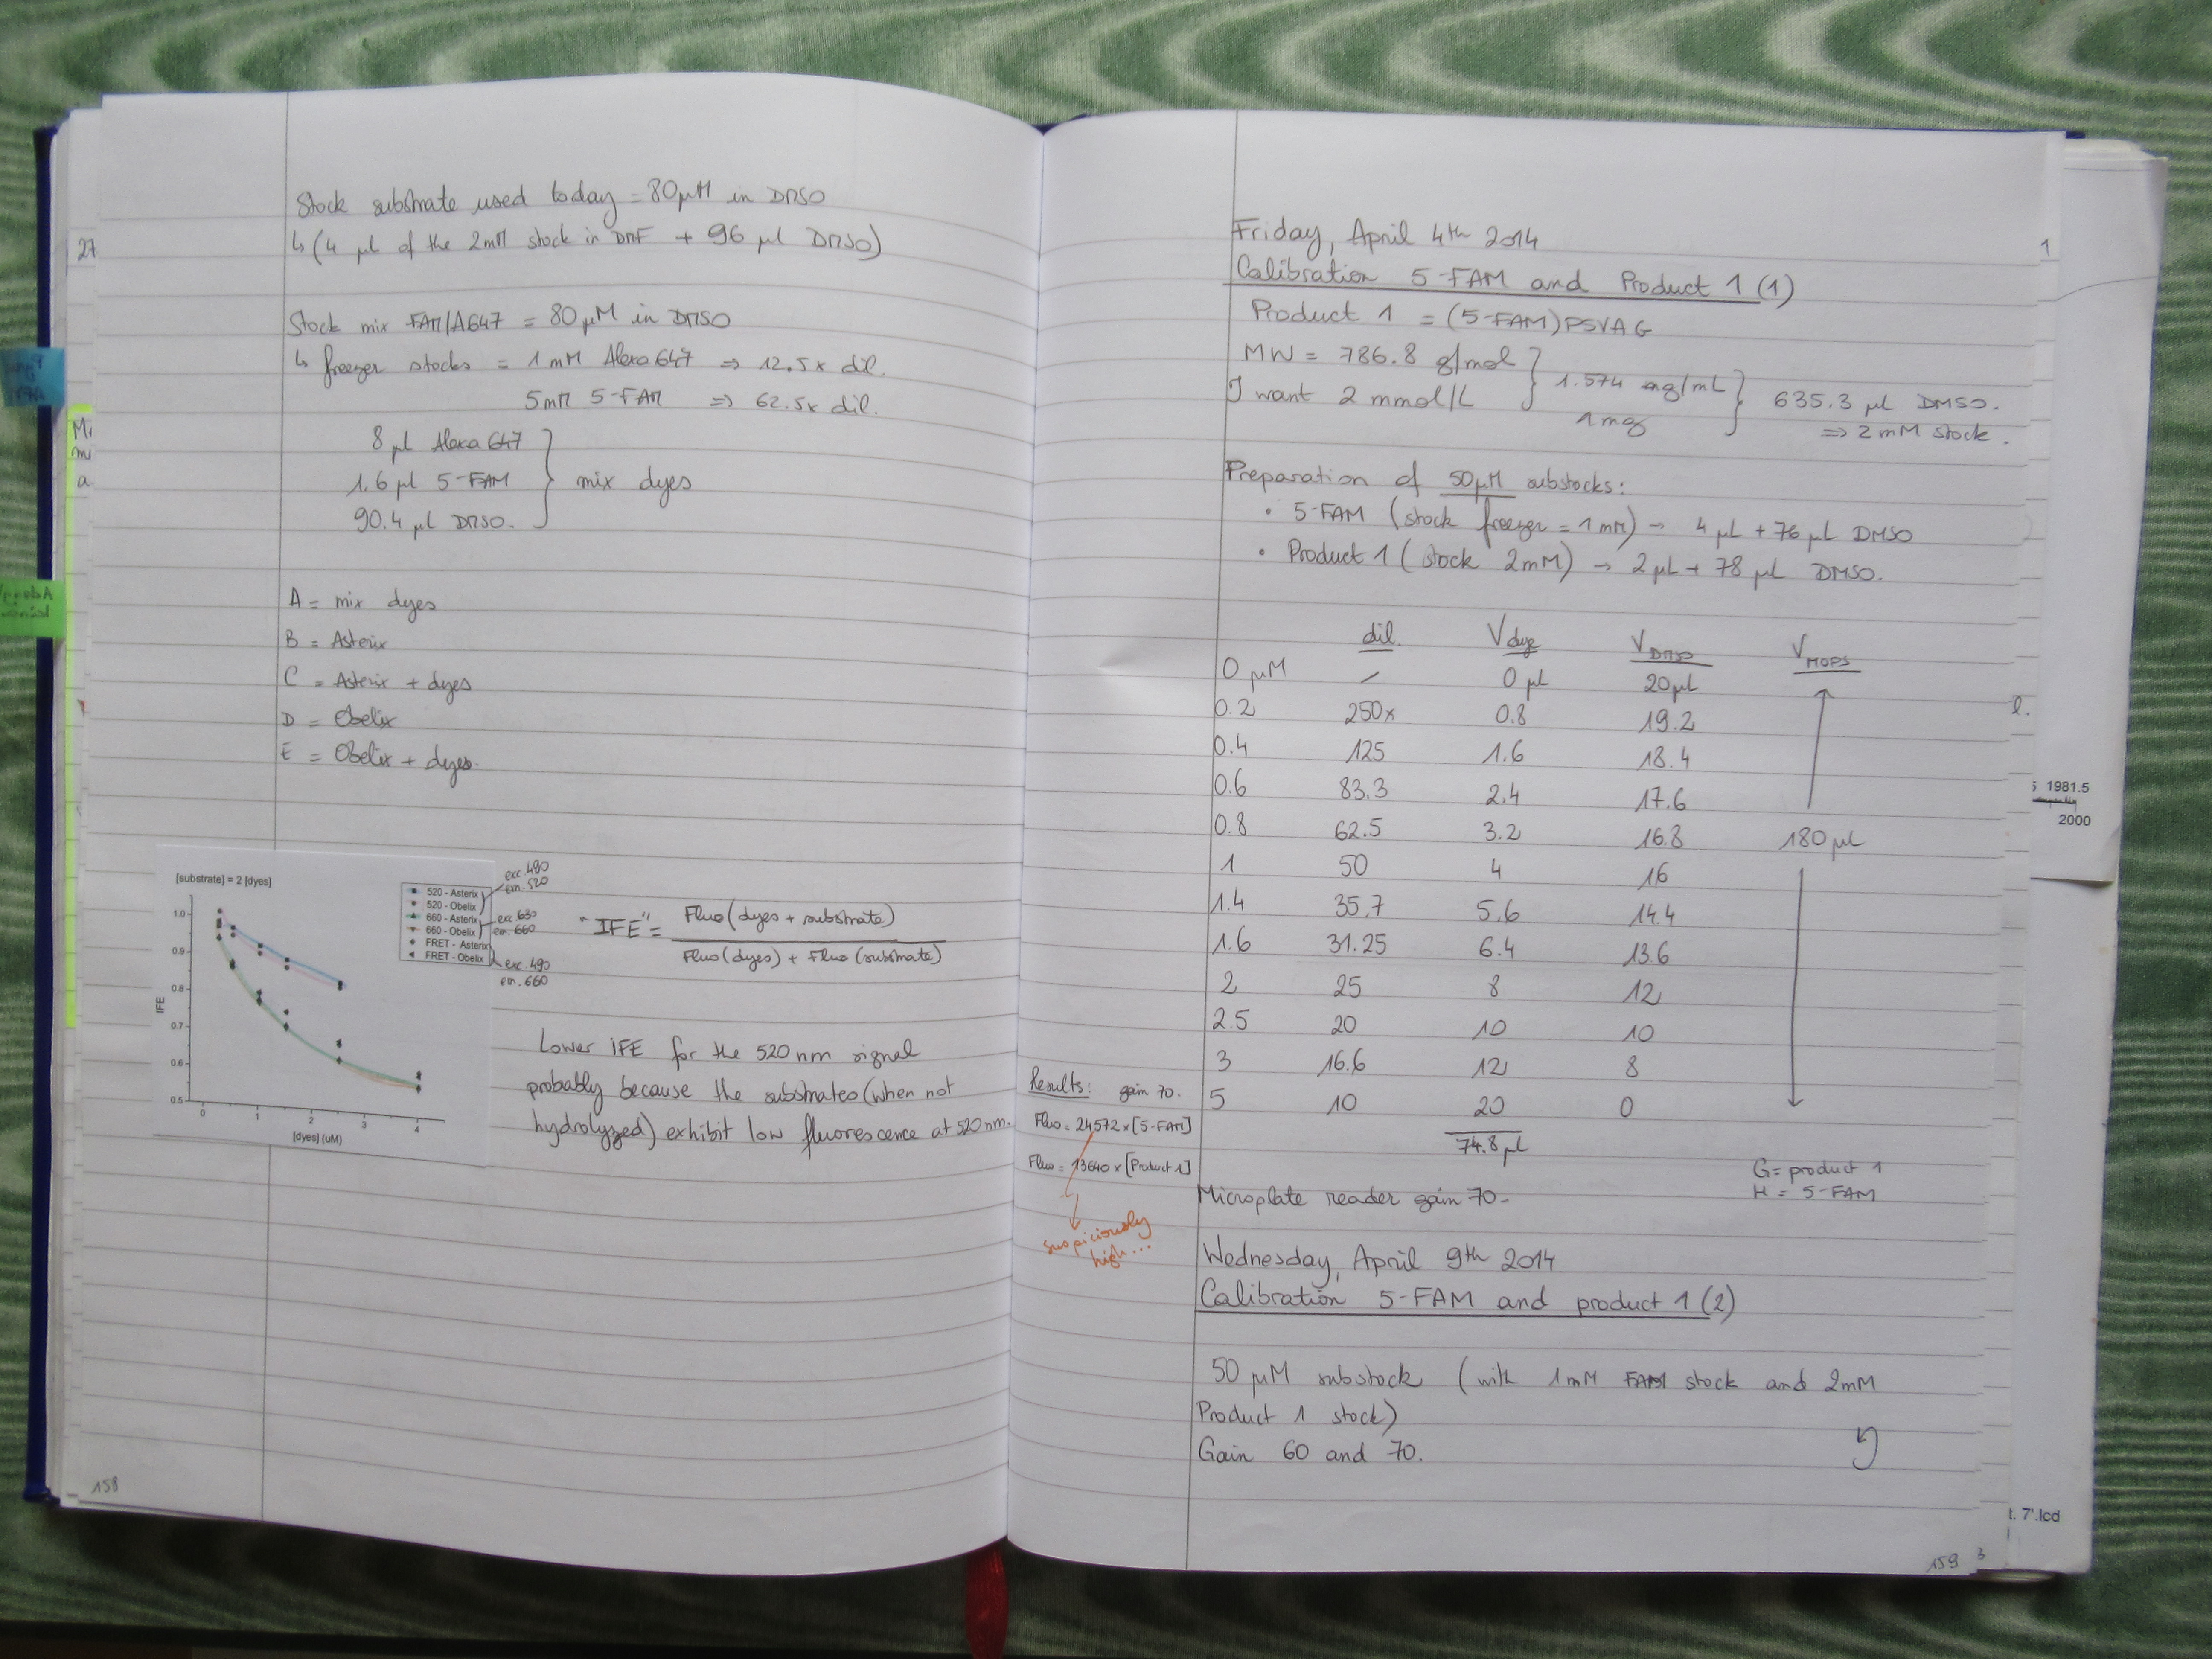 Stock substrate used today = 80 µM in DMSO
↳ (4 µl of the 2mM stock in DMF + 96 µl DMSO)
27
Stock mix FAM/A647 = 80 µM in DMSO
↳ freezer stocks = 1 mM Alexa 647 ⇒ 12.5x dil.
5mM 5-FAM ⇒ 62.5x dil.
8 µl Alexa 647
1.6 µl 5-FAM } mix dyes
90.4 µl DMSO.
A = mix dyes
B = Asterix
C = Asterix + dyes
D = Obelix
E = Obelix + dyes.
[substrate] = 2 [dyes]
520 - Asterix
520 - Obelix
660 - Asterix
660 - Obelix
FRET - Asterix
FRET - Obelix
exc 490
em. 520
exc. 630
em. 660
exc. 490
em. 660
IFE
1.0
0.9
0.8
0.7
0.6
0.5
0 1 2 3 4
[dyes] (uM)
"IFE" = Fluo (dyes + substrate)
Fluo (dyes) + Fluo (substrate)
Lower IFE for the 520 nm signal
probably because the substrates (when not
hydrolyzed) exhibit low fluorescence at 520 nm.
158
Friday, April 4th 2014
Calibration 5-FAM and Product 1 (1)
Product 1 = (5-FAM)PSVAG
MW = 786.8 g/mol } 1.574 mg/mL } 635.3 µl DMSO.
I want 2 mmol/L
1 mg ⇒ 2 mM stock.
Preparation of 50µM substocks:
• 5-FAM (stock freezer = 1 mM) → 4 µL + 76 µL DMSO
• Product 1 ( stock 2mM) → 2 µL + 78 µL DMSO.
dil. Vdye VDMSO VMOPS
0 µM / 0 µl 20µL
0.2 250x 0.8 19.2
0.4 125 1.6 18.4
0.6 83.3 2.4 17.6
0.8 62.5 3.2 16.8 180 µL
1 50 4 16
1.4 35.7 5.6 14.4
1.6 31.25 6.4 13.6
2 25 8 12
2.5 20 10 10
3 16.6 12 8
5 10 20 0
74.8 µl
Results: gain 70.
Fluo = 24572 x [5-FAM]
Fluo = 13640 x [Product 1]
suspiciously
high...
G = product 1
H = 5-FAM
Microplate reader gain 70-
Wednesday, April 9th 2014
Calibration 5-FAM and product 1 (2)
50 µM substock (with 1mM FAM stock and 2mM
Product 1 stock)
Gain 60 and 70.
159
1981.5
2000
t. 7'.lcd
3